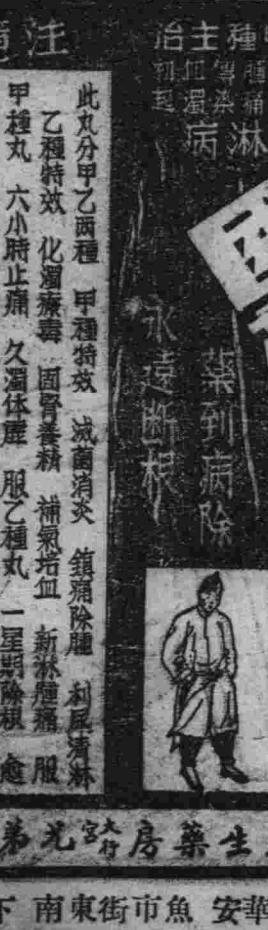 主治
種
淋
病
腫痛
傳染
血濁
初起
藥到病除
永遠断根
注
此丸分甲乙两種 甲種特效 滅菌消炎 鎮痛除腫 利尿清淋
乙種特效 化濁療毒 固腎養精 補氣培血 新淋腫痛 服
甲種丸 六小時止痛 久濁体虛 服乙種丸 一星期除根 愈
生藥房 大行宮 光弟
安華
魚市街東南
下